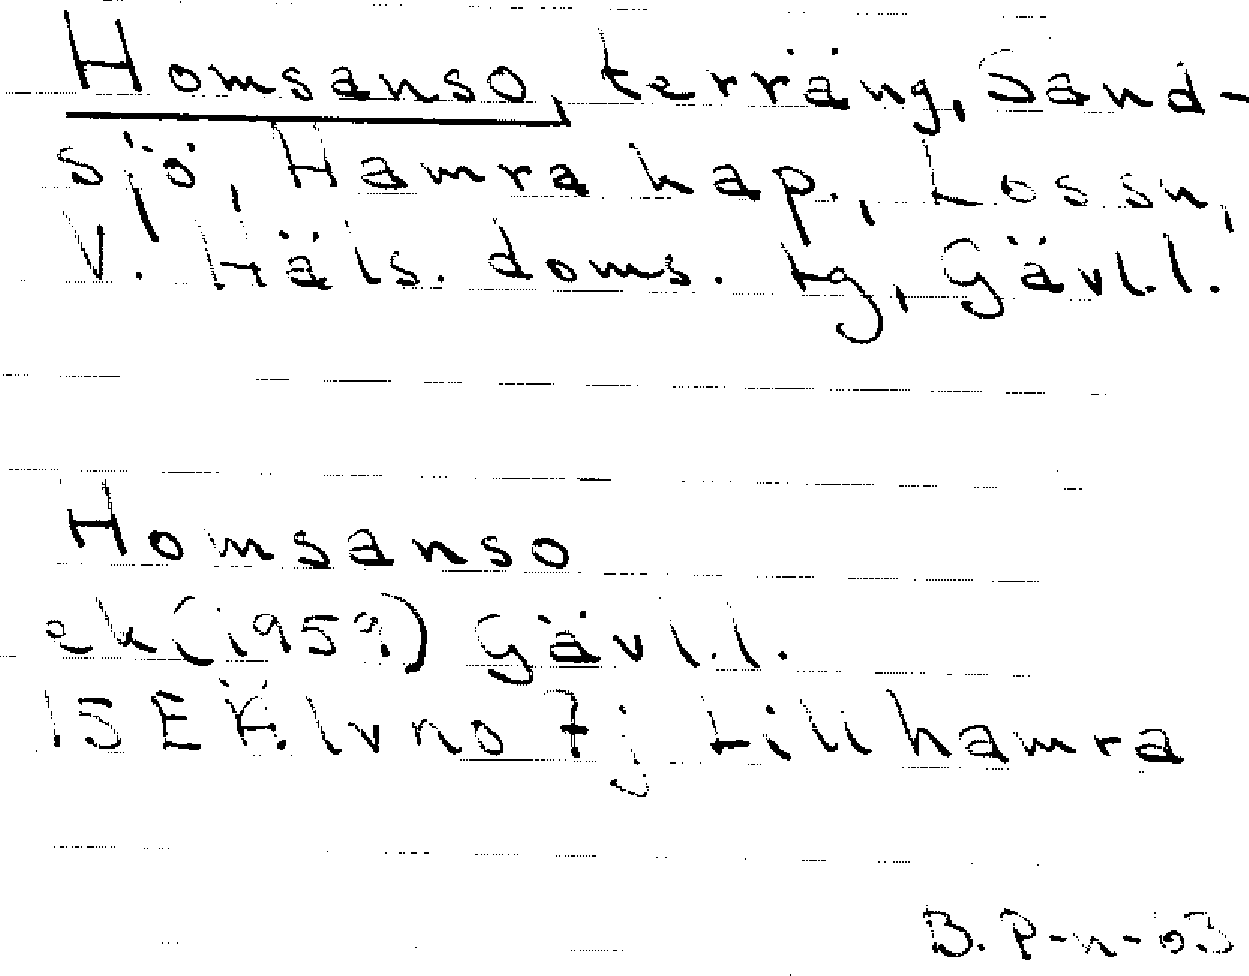 Homsanso, terräng, Sand-
sjö, Hamra kap., Los sn,
V. Häls. doms. tg, Gävl.l.
Homsanso
ek (1959) Gävl.l.
7j Lillhamra
B. P-n-03